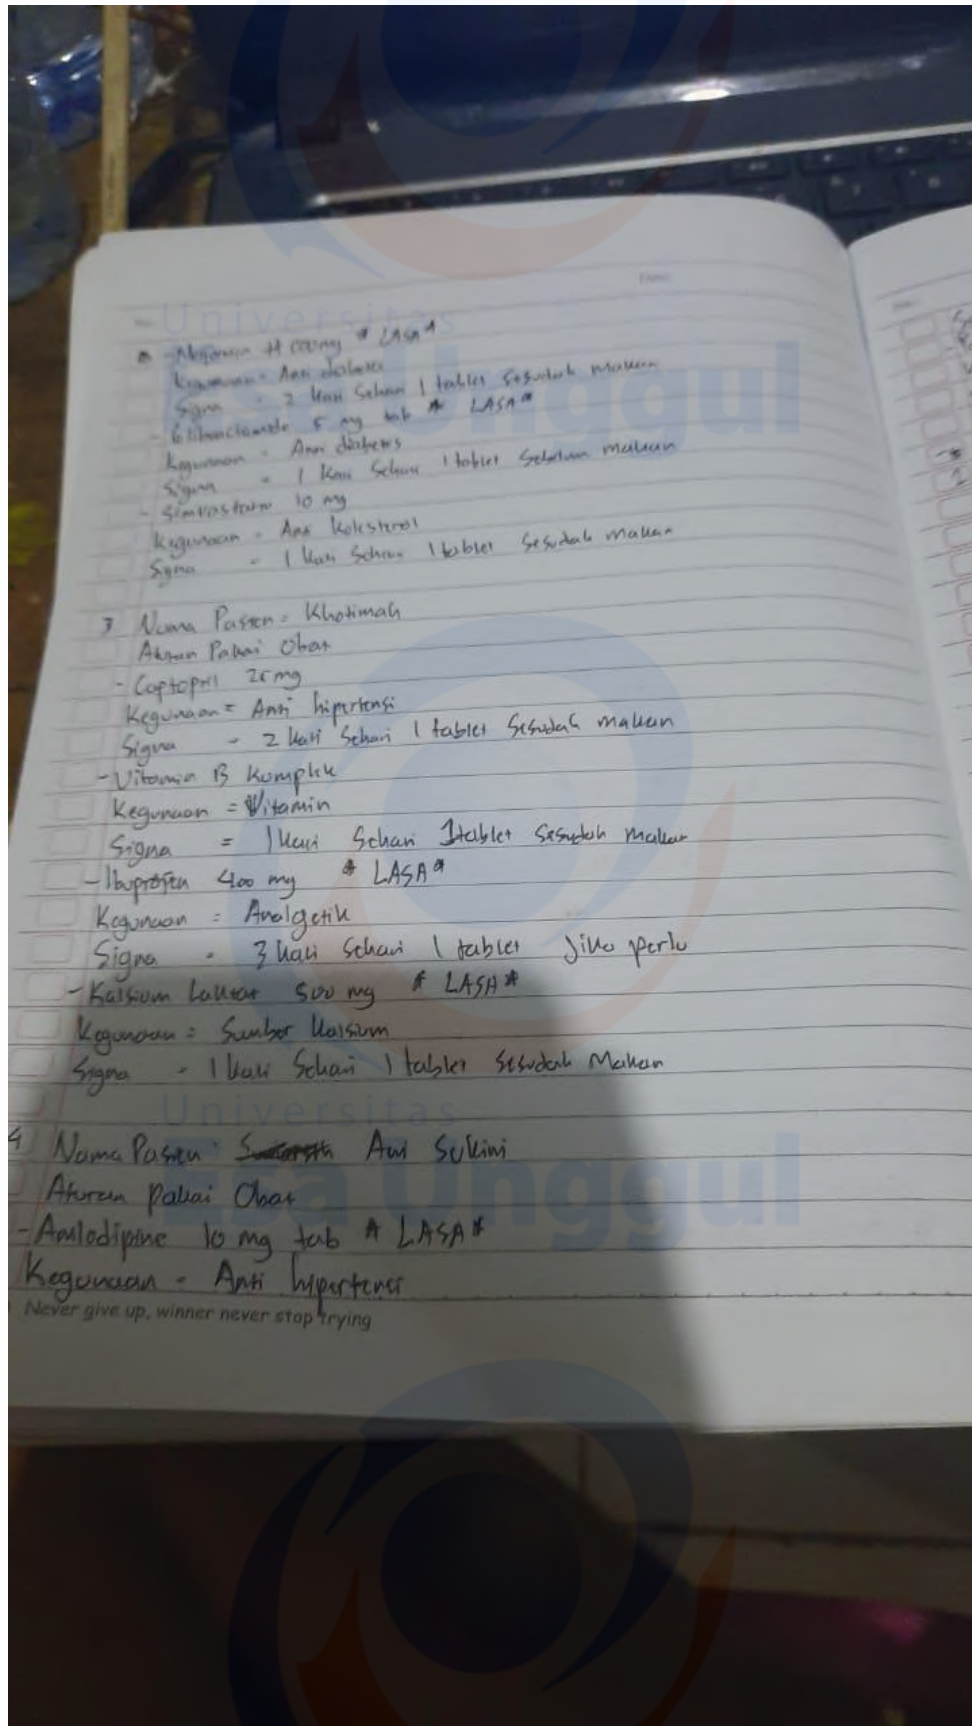 Universitas
Esa Unggul
* LASA*
Kegunaan = Anti diabetes
Signa = 2 kali Sehari 1 tablet Sesudah makan
- Glibenclamide 5 mg tab * LASA*
Kegunaan = Anti diabetes
Signa = 1 kali Sehari 1 tablet Sebelum makan
- Simvastatin 10 mg
Kegunaan = Anti Kolesterol
Signa = 1 kali Sehari 1 tablet Sesudah makan
3 Nama Pasien = Khotimah
Aturan Pakai Obat
- Captopril 25 mg
Kegunaan = Anti hipertensi
Signa = 2 kali Sehari 1 tablet Sesudah makan
- Vitamin B Komplek
Kegunaan = Vitamin
Signa = 1 kali Sehari 1 tablet Sesudah makan
- Ibuprofen 400 mg * LASA*
Kegunaan = Analgetik
Signa = 3 kali Sehari 1 tablet Jika perlu
- Kalsium Laktat 500 mg * LASA*
Kegunaan = Sumber Kalsium
Signa = 1 kali Sehari 1 tablet Sesudah Makan
Universitas
Esa Unggul
4 Nama Pasien Sukini
Aturan pakai Obat
- Amlodipine 10 mg tab * LASA*
Kegunaan = Anti hipertensi
Never give up, winner never stop trying